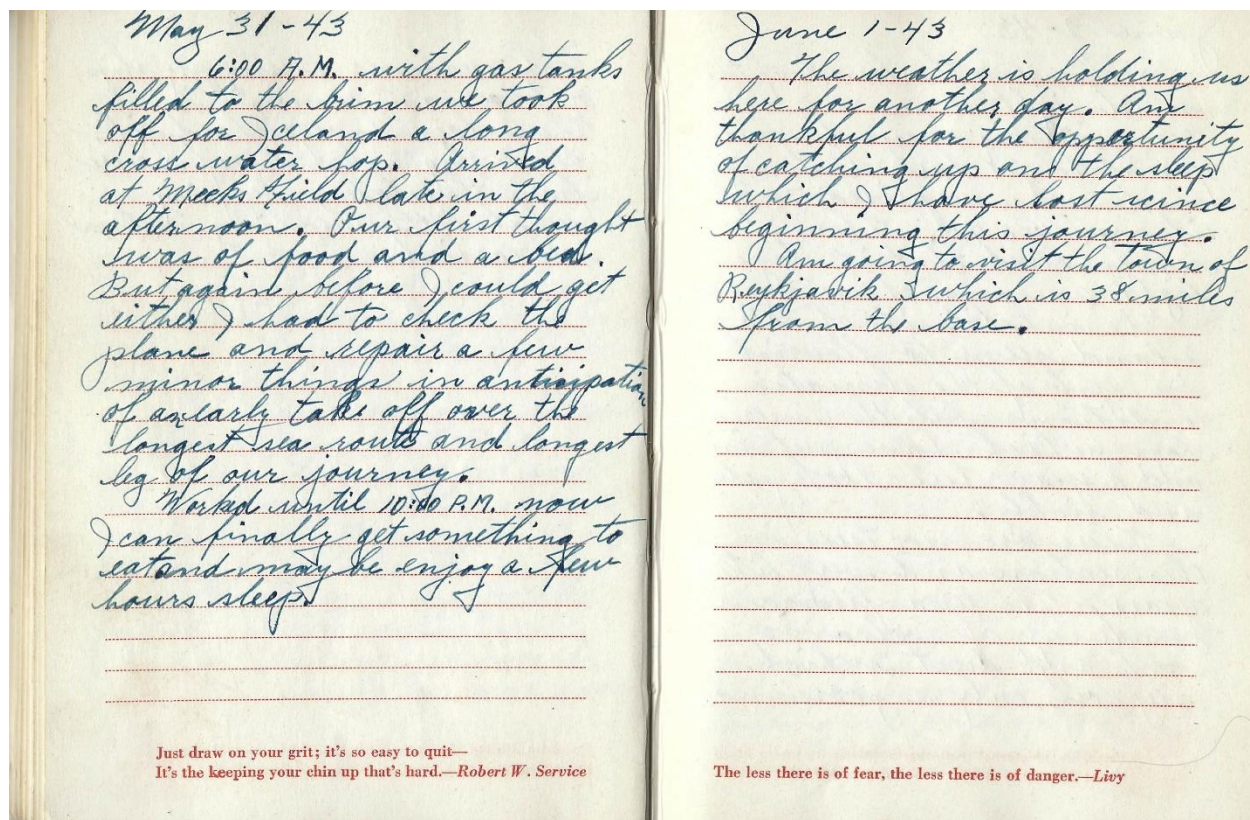 May 31-43
6:00 A.M. with gas tanks
filled to the brim we took
off for Iceland a long
cross water hop. Arrived
at Meeks Field late in the
afternoon. Our first thought
was of food and a bed.
But again before I could get
either I had to check the
plane and repair a few
minor things in anticipation
of an early take off over the
longest sea route and longest
leg of our journey.
Worked until 10:00 P.M. now
I can finally get something to
eat and may be enjoy a few
hours sleep.
Just draw on your grit; it's so easy to quit—
It's the keeping your chin up that's hard.—Robert W. Service
June 1-43
The weather is holding us
here for another day. Am
thankful for the opportunity
of catching up on the sleep
which I have lost scince
beginning this journey.
Am going to visit the town of
Reykjavik which is 38 miles
from the base.
The less there is of fear, the less there is of danger.—Livy